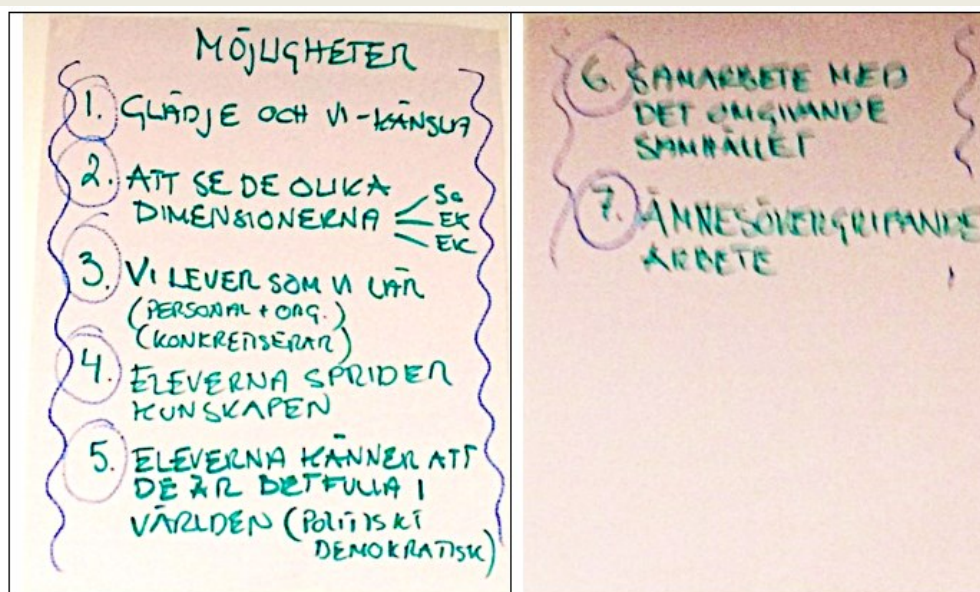 MÖJLIGHETER
1. GLÄDJE OCH VI-KÄNSLA
2. ATT SE DE OLIKA
DIMENSIONERNA
So
EK
EK
3. VI LEVER SOM VI LÄR
(PERSONAL + ORG.)
(KONKRETISERAR)
4. ELEVERNA SPRIDER
KUNSKAPEN
5. ELEVERNA KÄNNER ATT
DE ÄR BETFULLA I
VÄRLDEN (POLITISKT
DEMOKRATISK)
6. SAMARBETE MED
DET OMGIVANDE
SAMHÄLLET
7. ÄMNESÖVERGRIPANDE
ARBETE